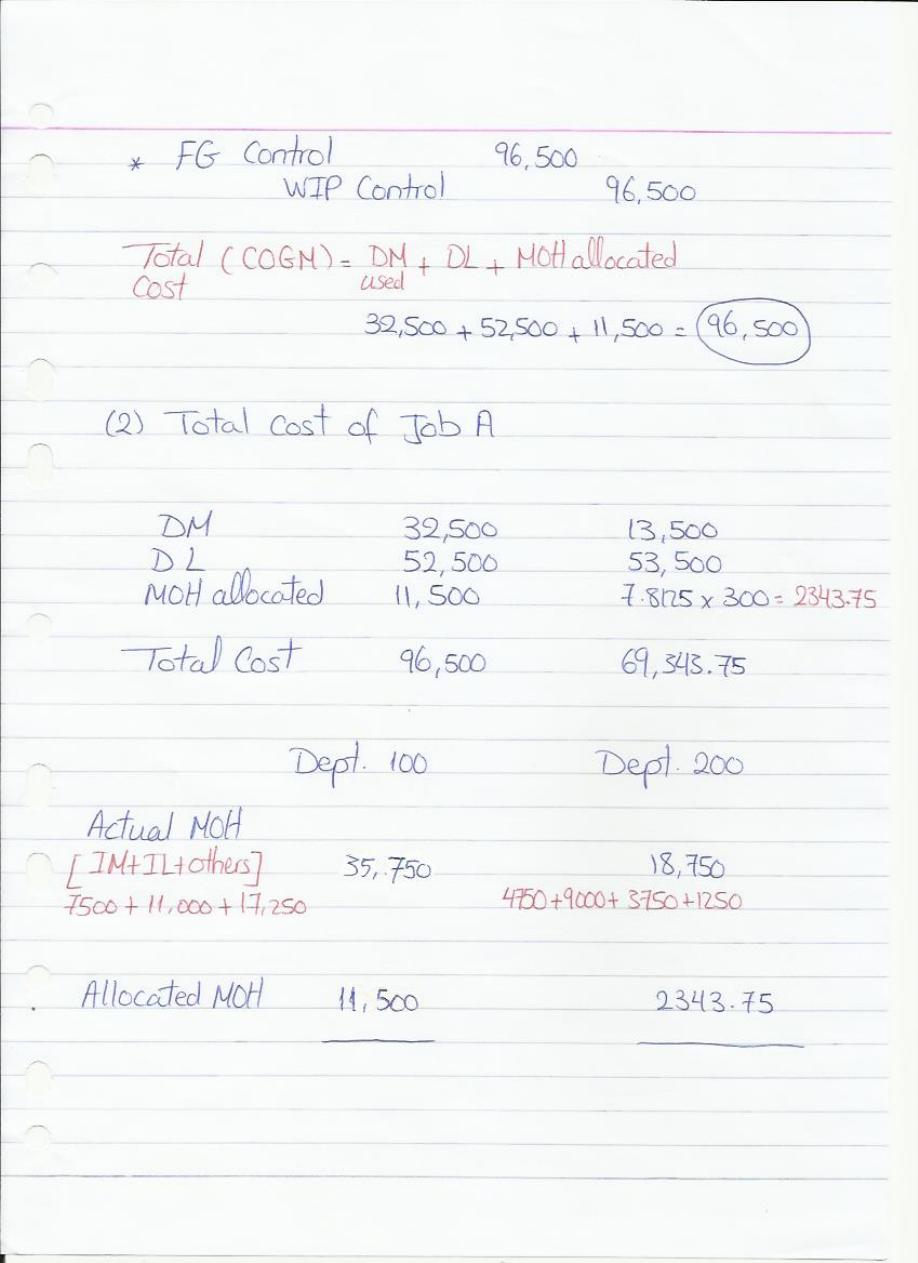 * FG Control 96,500
WIP Control 96,500
Total (COGM) = DM + DL + MOH allocated
Cost used
32,500 + 52,500 + 11,500 = 96,500
(2) Total Cost of Job A
DM 32,500 13,500
DL 52,500 53,500
MOH allocated 11,500 7.8125 x 300 = 2343.75
Total Cost 96,500 69,343.75
Dept. 100 Dept. 200
Actual MOH
[IM+IL+others] 35,750 18,750
7500 + 11,000 + 17,250 4750+9000+ 3750+1250
Allocated MOH 11,500 2343.75